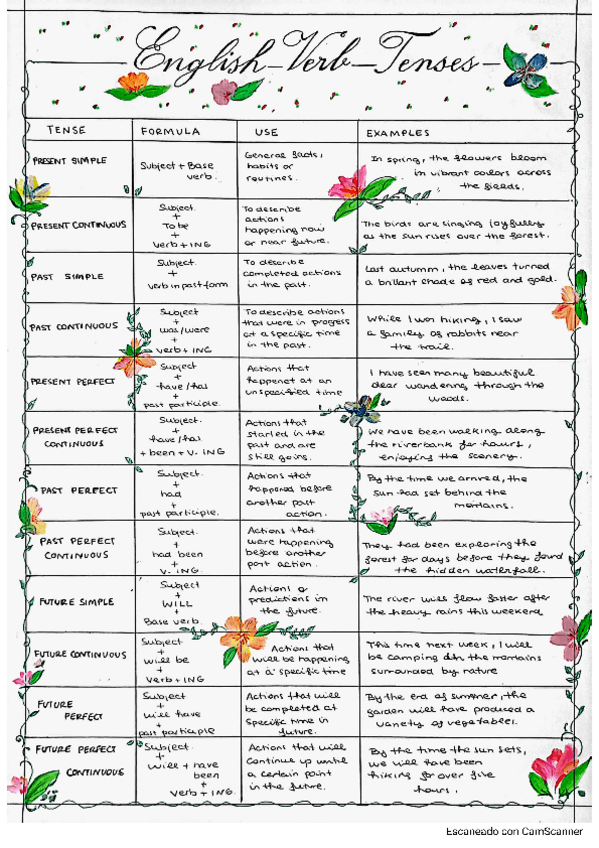 English Verb Tenses
TENSE FORMULA USE EXAMPLES
PRESENT SIMPLE
Subject + Base
verb.
General facts,
habits or
routines.
In spring, the flowers bloom
in vibrant colors across
the fields.
PRESENT CONTINUOUS
Subject
+
To be
+
verb + ING
To describe
actions
happening now
or near future.
The birds are singing joyfully
as the sun rises over the forest.
PAST SIMPLE
Subject.
+
verb in past form
To describe
completed actions
in the past.
Last autumn, the leaves turned
a brillant shade of red and gold.
PAST CONTINUOUS
Subject
+
was/were
+
verb + ING
To describe actions
that were in progress
at a specific time
in the past.
While I was hiking, I saw
a family of rabbits near
the trail.
PRESENT PERFECT
Subject
+
have/has
+
past participle.
Actions that
happenet at an
unspecified time
I have seen many beautiful
dear wandering through the
woods.
PRESENT PERFECT
CONTINUOUS
Subject.
+
have/has
+ been + V. ING
Actions that
started in the
past and are
still going.
We have been walking along
the riverbank for hours,
enjoying the scenery.
PAST PERFECT
Subject.
+
had
+
past participle.
Actions that
happened before
another past
action.
By the time we arrived, the
sun had set behind the
montains.
PAST PERFECT
CONTINUOUS
Subject.
+
had been
+
V. ING.
Actions that
were happening
before another
past action.
They had been exploring the
forest for days before they found
the hidden waterfall.
FUTURE SIMPLE
Subject
+
WILL
+
Base verb.
Actions o
predictions in
the future.
The river will flow faster after
the heavy rains this weekend
FUTURE CONTINUOUS
Subject
+
will be
+
verb + ING
Actions that
will be happening
at a specific time
This time next week, I will
be camping the montains
surrounded by nature
FUTURE
PERFECT
Subject
+
will have
+
past participle
Actions that will
be completed at
specific time in
future.
By the end of summer, the
garden will have produced a
variety of vegetables.
FUTURE PERFECT
CONTINUOUS
Subject.
+
will + have
been
+
verb + ING.
Actions that will
continue up until
a certain point
in the future.
By the time the sun sets,
we will have been
hiking for over five
hours.
Escaneado con CamScanner